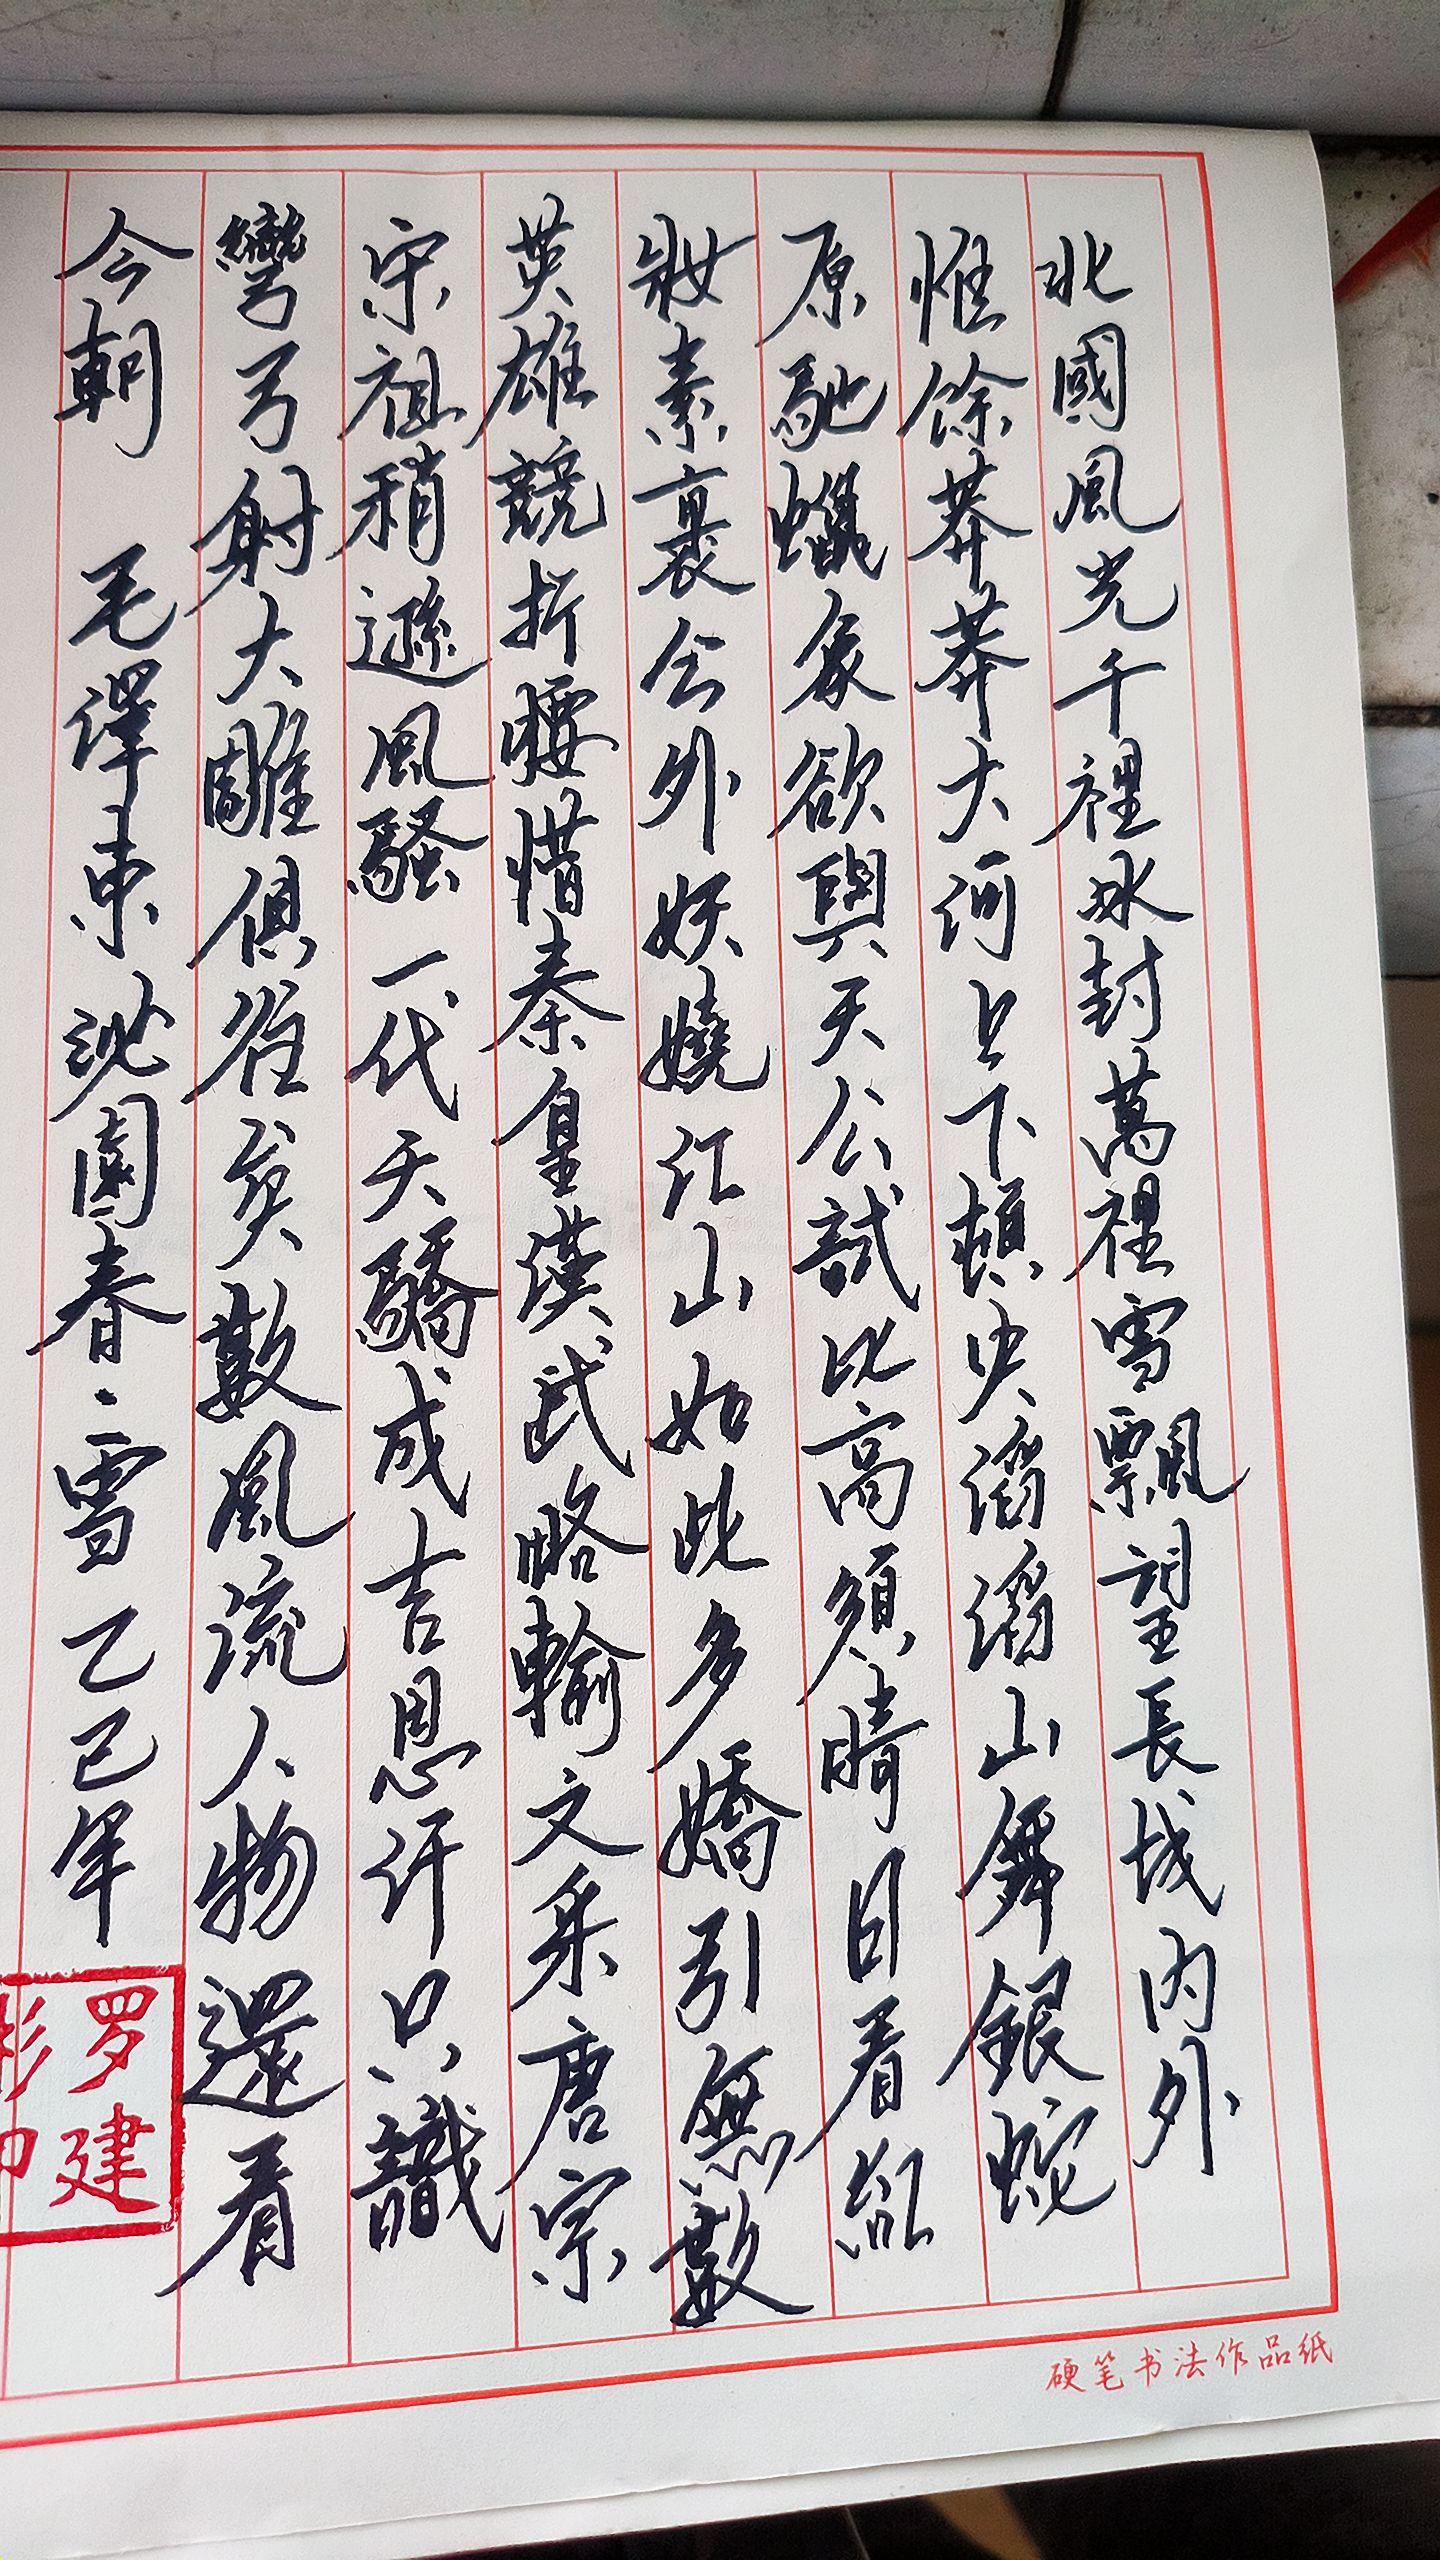 北國風光千裡冰封萬裡雪飄望長城内外
惟餘莽莽大河上下頓失滔滔山舞銀蛇
原馳蠟象欲與天公試比高須晴日看紅
妝素裹分外妖嬈江山如此多嬌引無數
英雄競折腰惜秦皇漢武略輸文采唐宗
宋祖稍遜風騷一代天驕成吉思汗只識
彎弓射大雕俱往矣數風流人物還看
今朝 毛澤東沁園春·雪乙巳年
罗建
彬印
硬笔书法作品纸